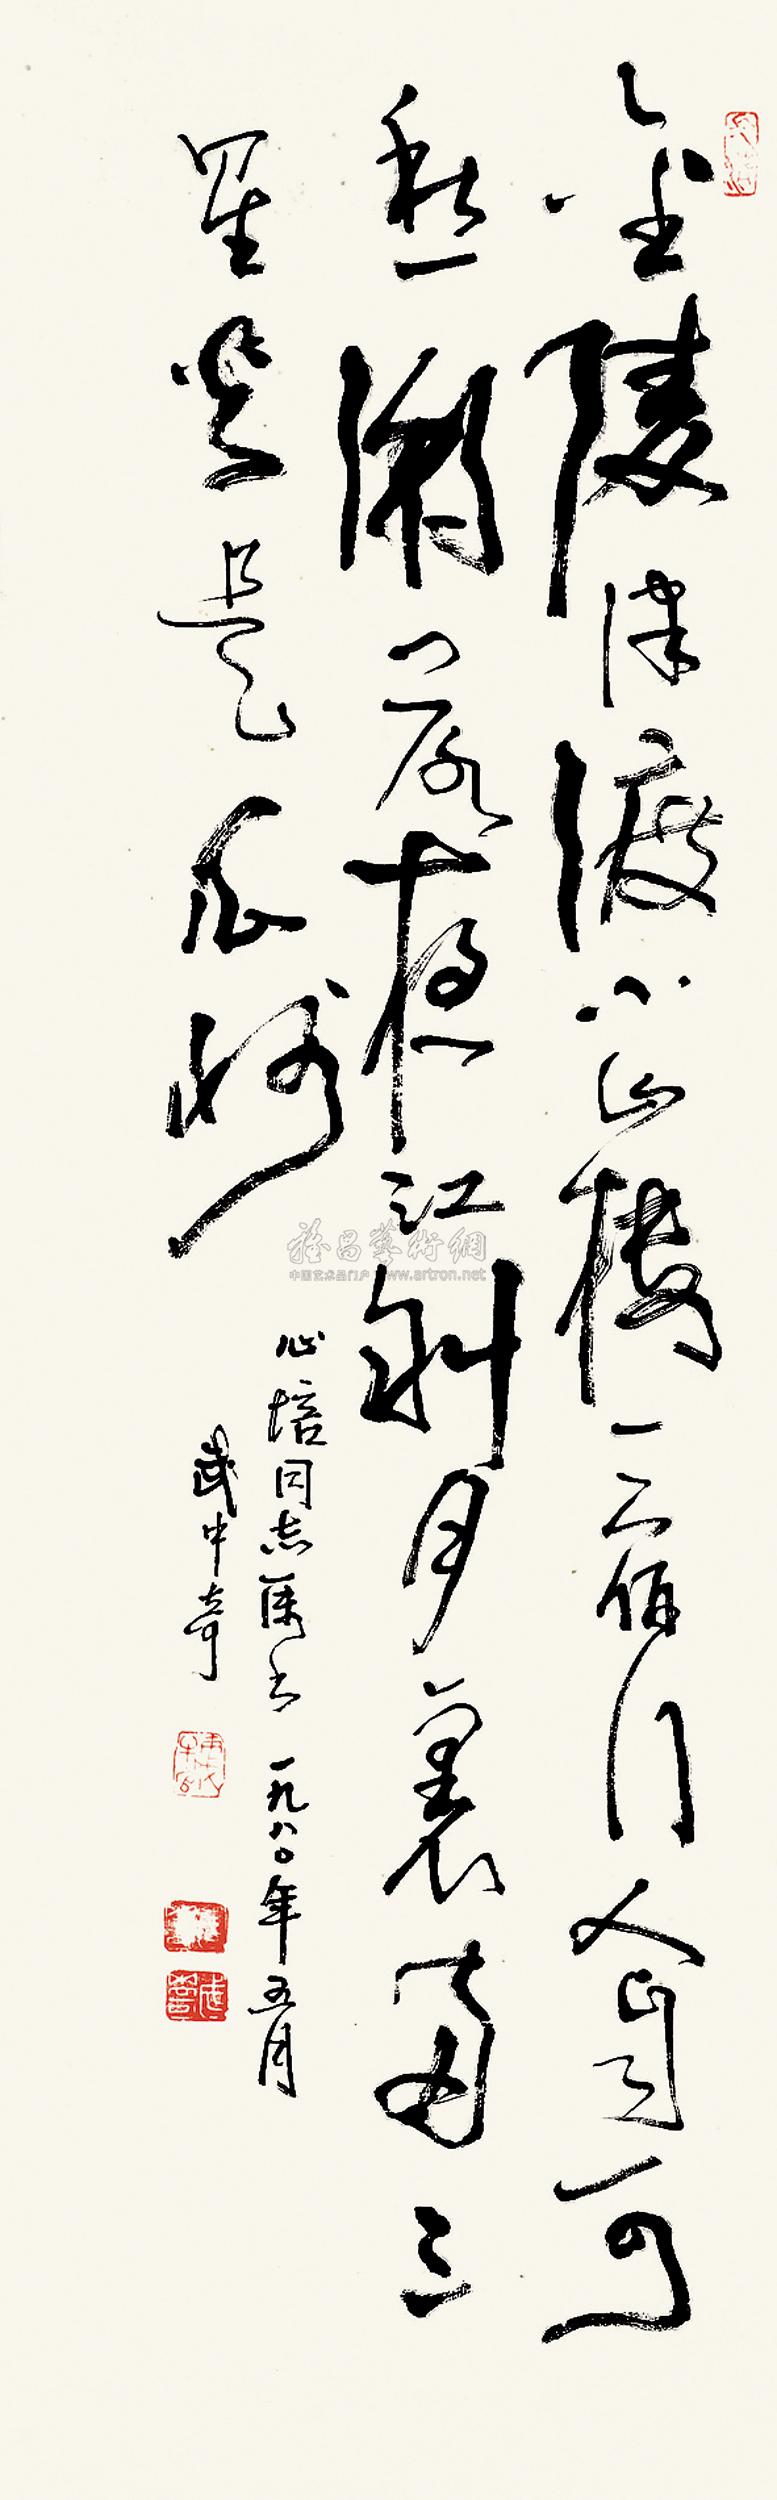 金陵津渡小山樓一宿行人自可
愁潮落夜江斜月裏兩三
星火是瓜洲
心培同志属书 一九八〇年五月
武中奇
雅昌藝術網
中国艺术品门户 www.artron.net